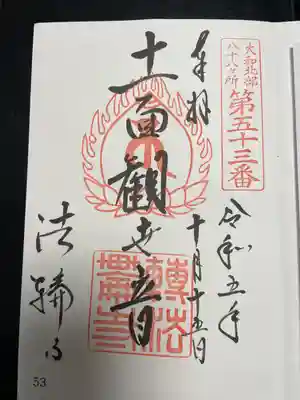 大和北部
八十八ヶ所
第五十三番
奉拝
令和五年
十月十五日
十一面観世音
法輪寺
53